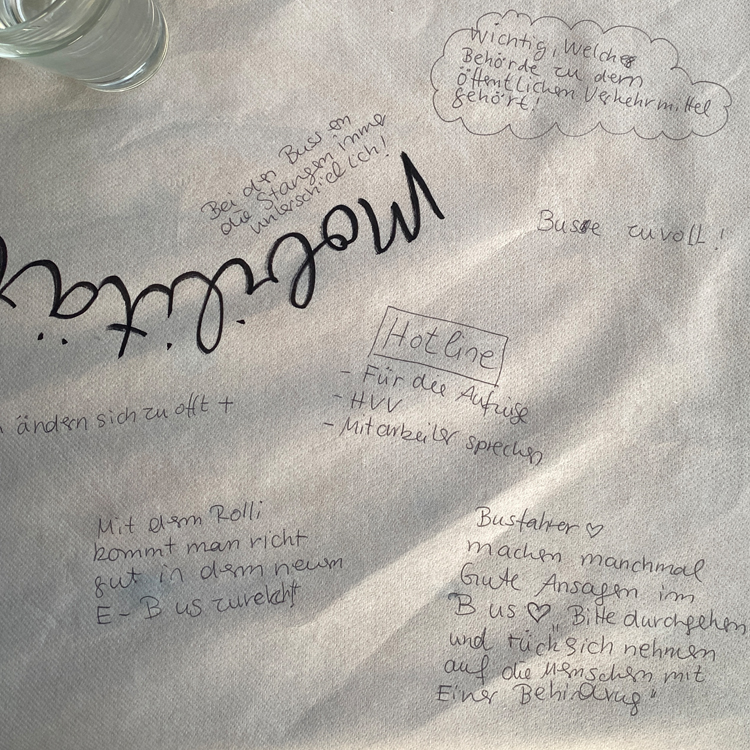 Wichtig, Welche
Behörde zu dem
öffentlichen Verkehrmittel
gehört!
Bei den Bussen
die Stangen immer
unterschielich!
Mobilitä
Busse zu voll!
Hotline
- Für die Aufzüge
- HVV
- Mitarbeiter sprechen
ändern sich zu offt +
Mit dem Rolli
kommt man nicht
gut in dem neuen
E-Bus zurecht
Busfahrer ♡
machen manchmal
Gute Ansagen im
Bus ♡ „Bitte durchgehen
und rücksich nehmen
auf die Menschen mit
Einer Behindrug"